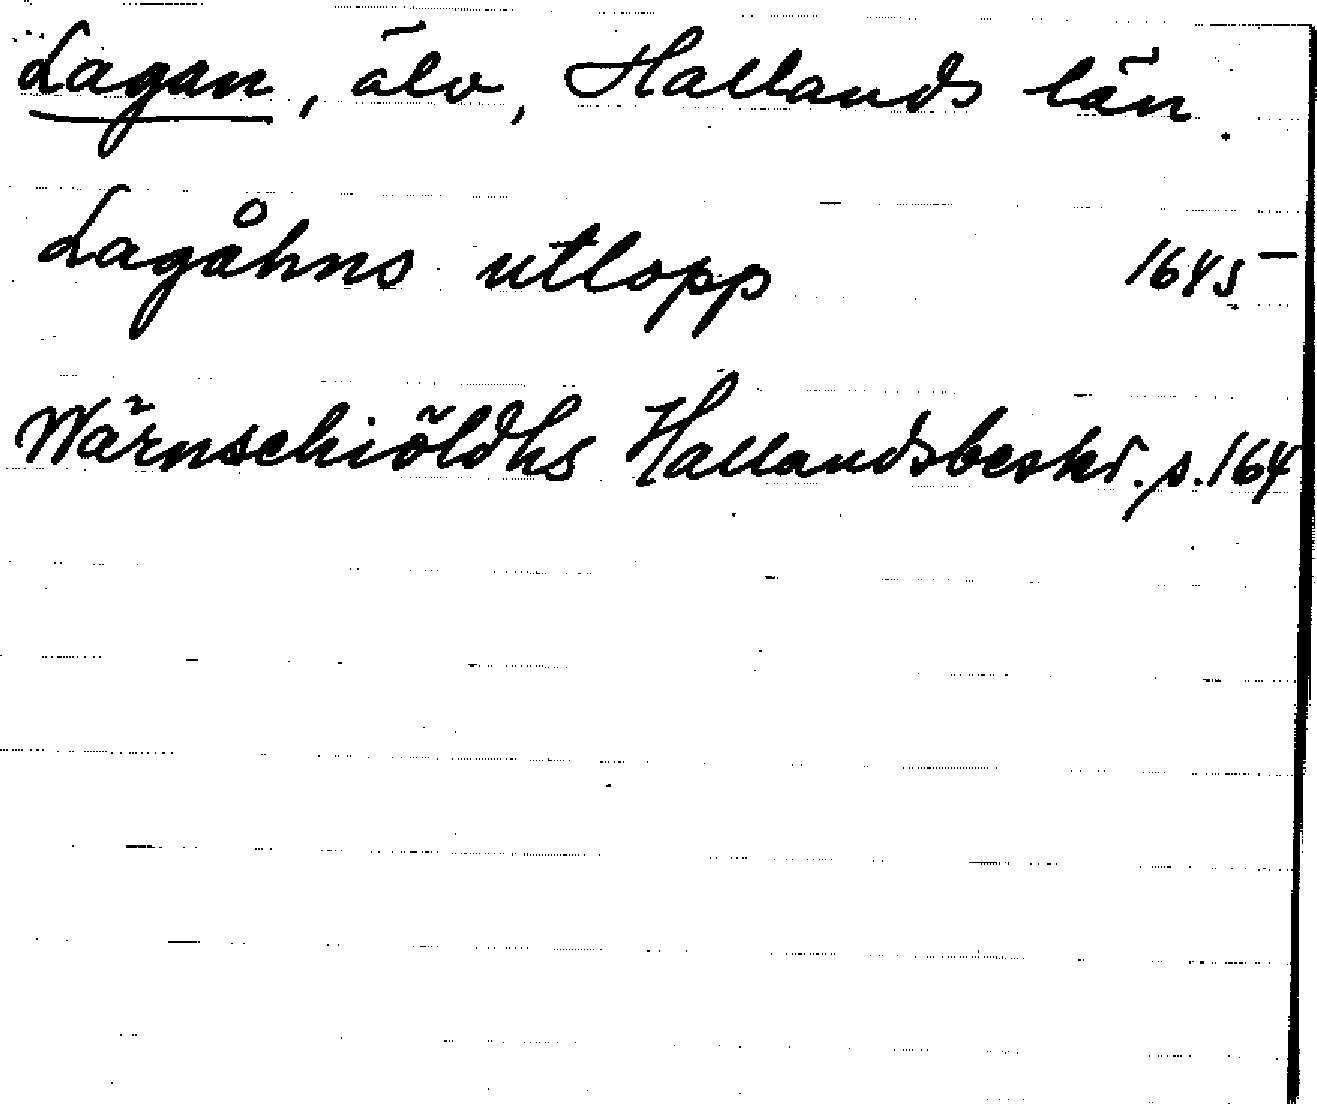 Lagan, älv, Hallands län.
Lagåhns utlopp 1645
Wärnschiöldhs Hallandsbeskr. s. 164